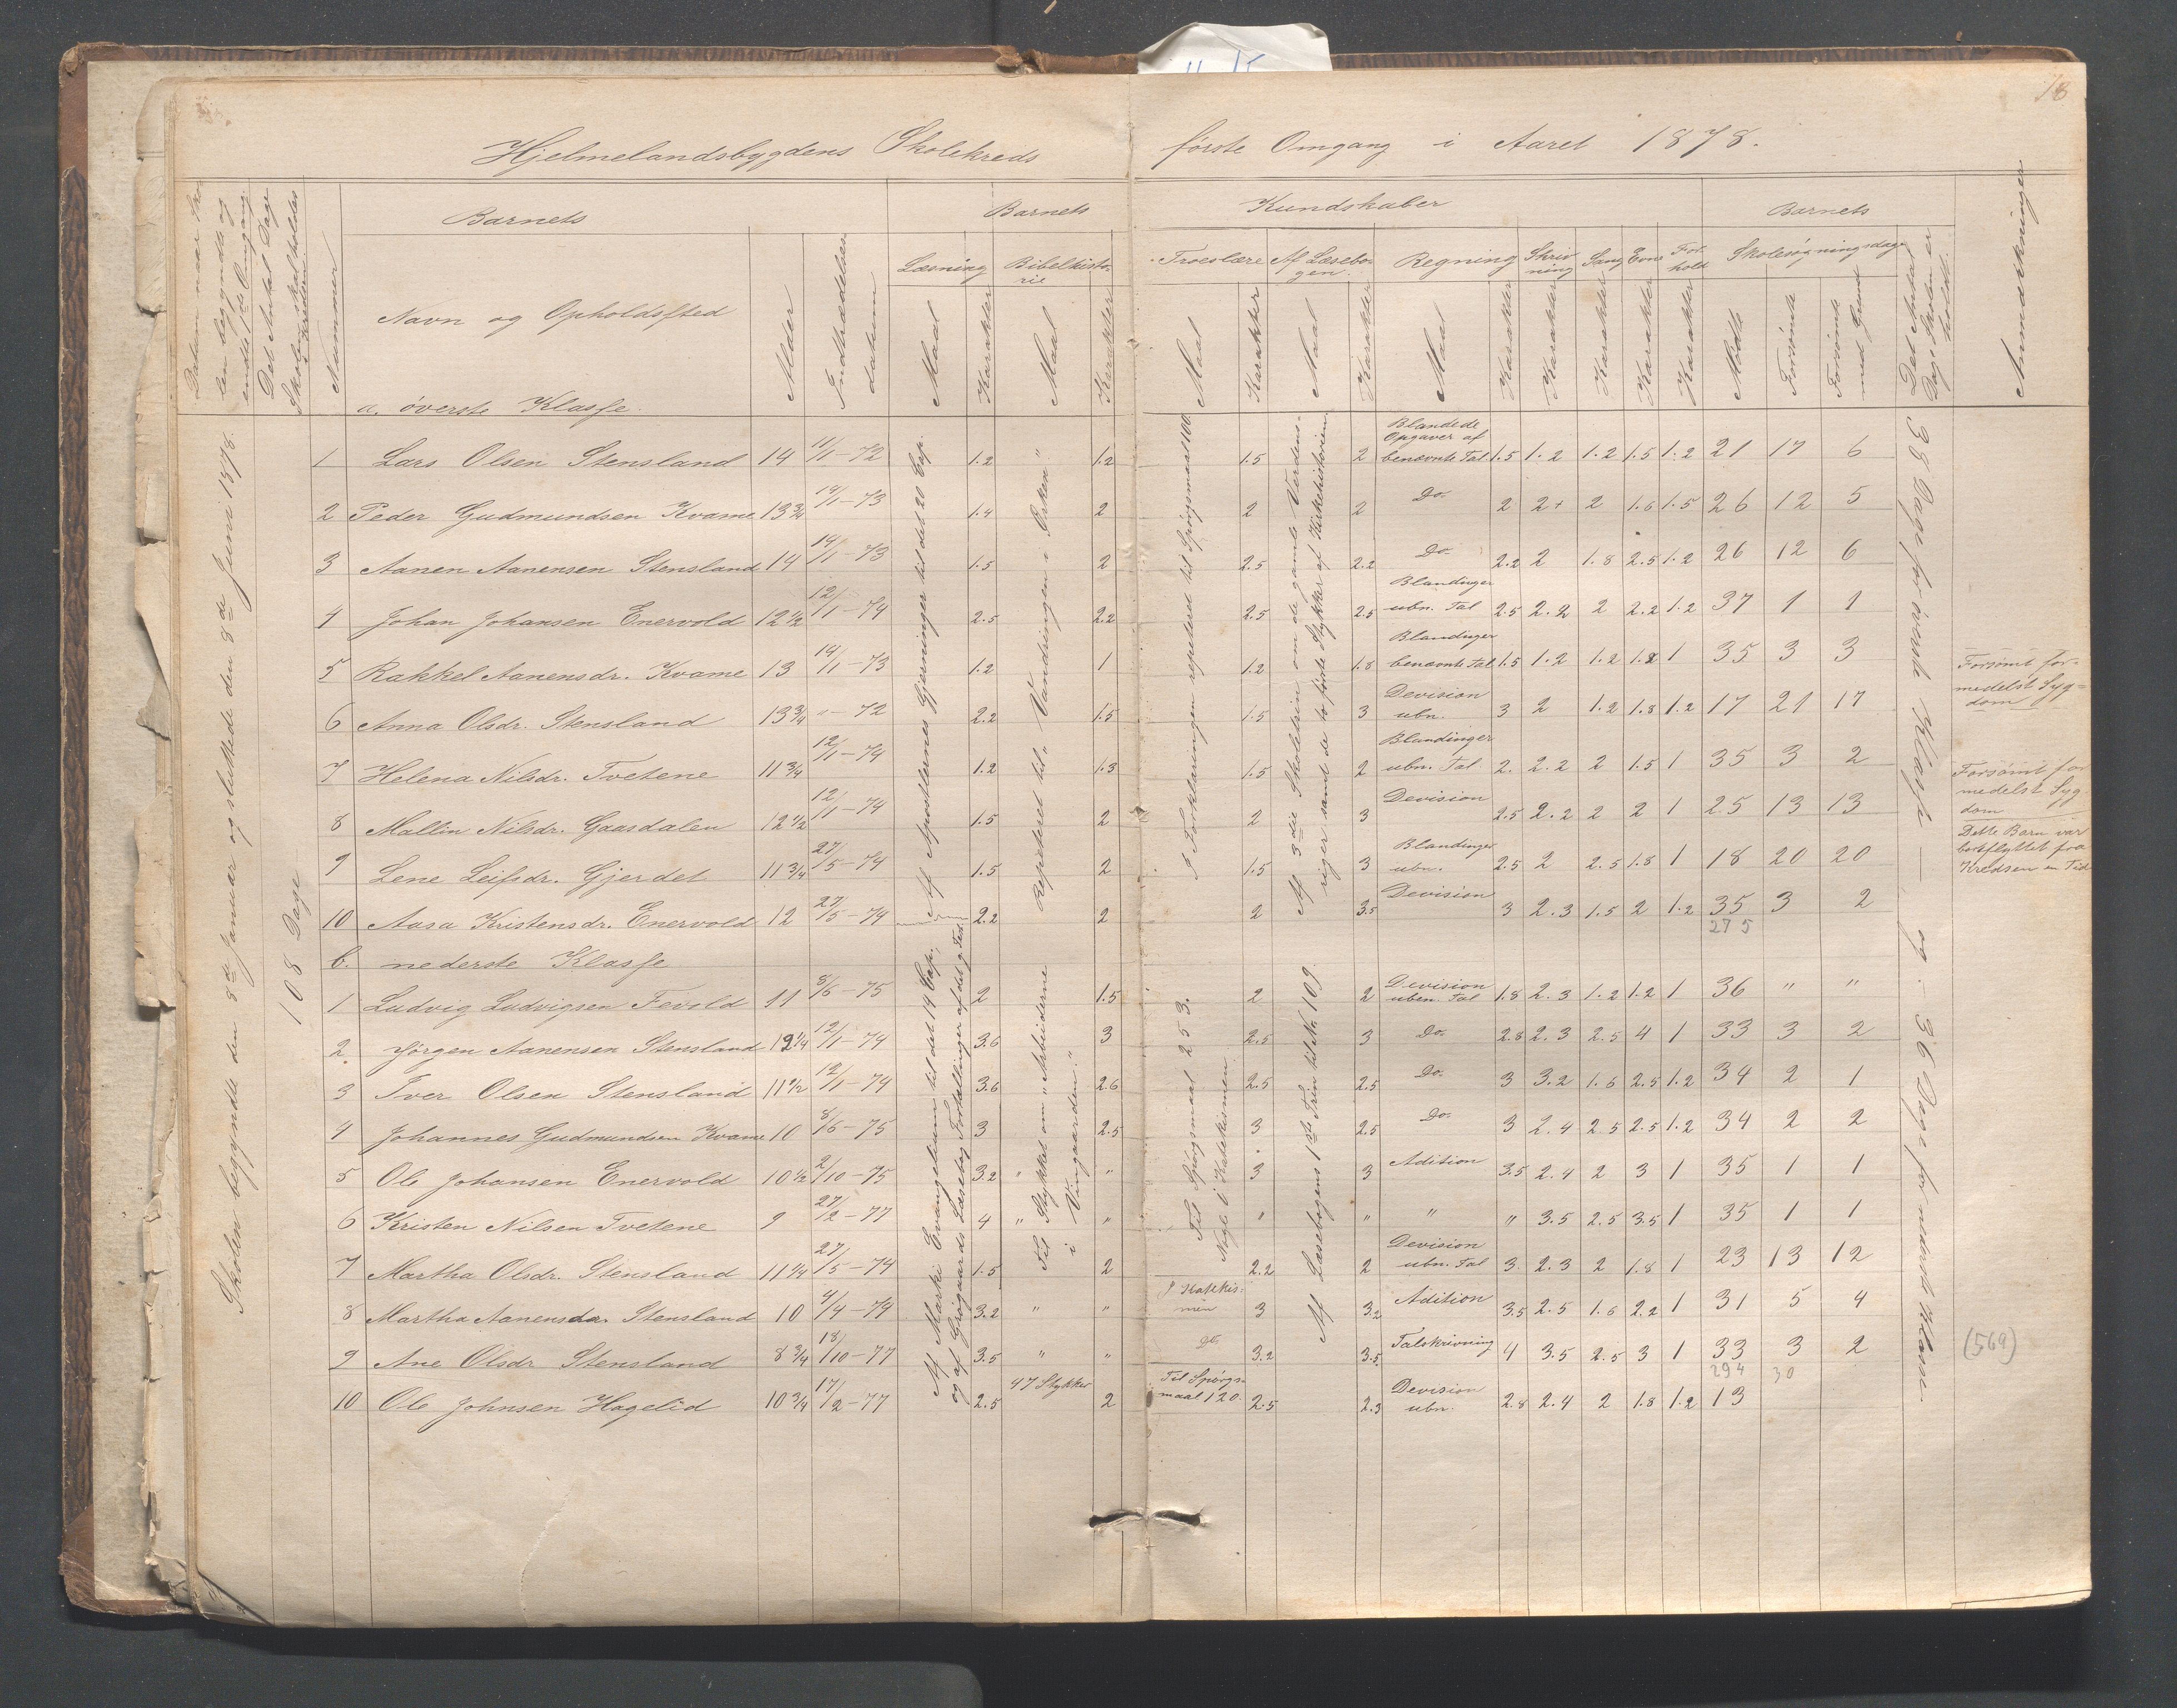 18
Hjelmelandsbygdens Skolekreds første Omgang i Aaret 1878.
Barnets Barnets Kundskaber Barnets
Det Antal Dage Skolen skal holdes i Kredsen
Nummer
Navn og Opholdssted
Alder
Indtrædelses datum
Læsning Bibelhistorie Troeslære Af Læsebogen Regning Skrivning Sang Evne Forhold Skolesøgningsdage
Maal Karakter Maal Karakter Maal Karakter Maal Karakter Maal Karakter Karakter Karakter Karakter Karakter Mødte Forsømte Forsømte med Grund
Det Antal Dage Skolen er holdt.
Anmærkninger
a. øverste Klasse.
Skolen begyndte den 8de Januar og sluttede den 8de Juni 1878.
108 Dage
Af Apostlernes Gjerninger til det 20 Cap.
Repeteret til "Vandringen i Ørken"
I Forklaringen repeteret til Spørgsmaal 100
Af 3die Skoletrin om de gamle Verdensriger samt de to første Stykker af Kirkehistorien
38 Dage for øverste Klasse — og 36 Dage for nederste Klasse.
1 Lars Olsen Stensland 14 11/1-72 1.2 1.2 1.5 2 Blandede Opgaver af benævnte Tal 1.5 1.2 1.2 1.5 1.2 21 17 6
2 Peder Gudmundsen Kvame 13¾ 14/1-73 1.4 2 2 2 Do. 2 2+ 2 1.6 1.5 26 12 5
3 Aanen Aanensen Stensland 14 14/1-73 1.5 2 2.5 2.2 Do. 2.2 2 1.8 2.5 1.2 26 12 6
4 Johan Johansen Enervold 12½ 12/1-74 2.5 2.2 2.5 2.5 Blandinger ubn. Tal 2.5 2.2 2 2.2 1.2 37 1 1
5 Rakkel Aanensdr. Kvame 13 14/1-73 1.2 1 1.2 1.8 Blandinger benævnte Tal 1.5 1.2 1.2 1.2 1 35 3 3
6 Anna Olsdr. Stensland 13¾ "-72 2.2 1.5 1.5 3 Devision ubn. 3 2 1.2 1.8 1.2 17 21 17 Forsømt formedelst Sygdom
7 Helena Nilsdr. Tvetene 11¾ 12/1-74 1.2 1.3 1.5 2 Blandinger ubn. Tal 2. 2.2 2 1.5 1 35 3 2
8 Mallin Nilsdr. Gaasdalen 12½ 12/1-74 1.5 2 2 3 Devision 2.5 2.2 2 2 1 25 13 13 Forsømt formedelst Sygdom
9 Lene Leifsdr. Gjerdet 11¾ 27/5-74 1.5 2 1.5 3 Blandinger ubn. 2.5 2 2.5 1.8 1 18 20 20 Dette Barn var bortflyttet fra Kredsen en Tid
10 Aasa Kristensdr. Enervold 12 27/5-74 2.2 2 2 3.5 Devision 3 2.3 1.5 2 1.2 35 3 2
275
b. nederste Klasse
Af Marki Evangelium til det 14 Cap. og af Grøgaards Læsebog Fortællinger af det g. Test.
Til Stykket om "Arbeiderne i Vingaarden."
Til Spørgsmaal 253. Nogle i Katekismen
Af Læsebogens 1ste Trin til Nr. 109.
1 Ludvig Ludvigsen Fevold 11 8/6-75 2 1.5 2 2 Devision uben. Tal 1.8 2.3 1.2 1.2 1 36 " "
2. Jørgen Aanensen Stensland 12¼ 12/1-74 3.6 3 2.5 3 Do. 2.8 2.3 2.5 4 1 33 3 2
3 Iver Olsen Stensland 11½ 12/1-74 3.6 2.6 2.5 2.5 Do. 3 3.2 1.6 2.5 1.2 34 2 1
4 Johannes Gudmundsen Kvame 10 8/6-75 3 2.5 3 2.5 Do. 3 2.4 2.5 2.5 1.2 34 2 2
5 Ole Johansen Enervold 10½ 2/10-75 3.2 " " 3 3 Adition 3.5 2.4 2 3 1 35 1 1
6 Kristen Nilsen Tvetene 9 27/2-77 4 " " " " " " 3.5 2.5 3.5 1 35 1 1
7 Martha Olsdr. Stensland 11¼ 27/5-74 1.5 2 2.2 2 Devision ubn. Tal 3. 2.3 2 1.8 1 23 13 12
8 Martha Aanensdr. Stensland 10 4/4-74 3.2 " " I Katekismen 3 3.2 Adition 3.5 2.5 1.6 2.2 1 31 5 4
9 Ane Olsdr Stensland 8¾ 18/10-77 3.5 " " Do. 3.2 3.5 Talskrivning 4 3.5 2.5 3 1 33 3 2 (569)
294 30
10 Ole Johnsen Hagelid 10¾ 17/2-77 2.5 47 Stykker 2 Til Spørgsmaal 120. 2.5 2.3 Devision ubn. 2.8 2.4 2 1.8 1.2 13